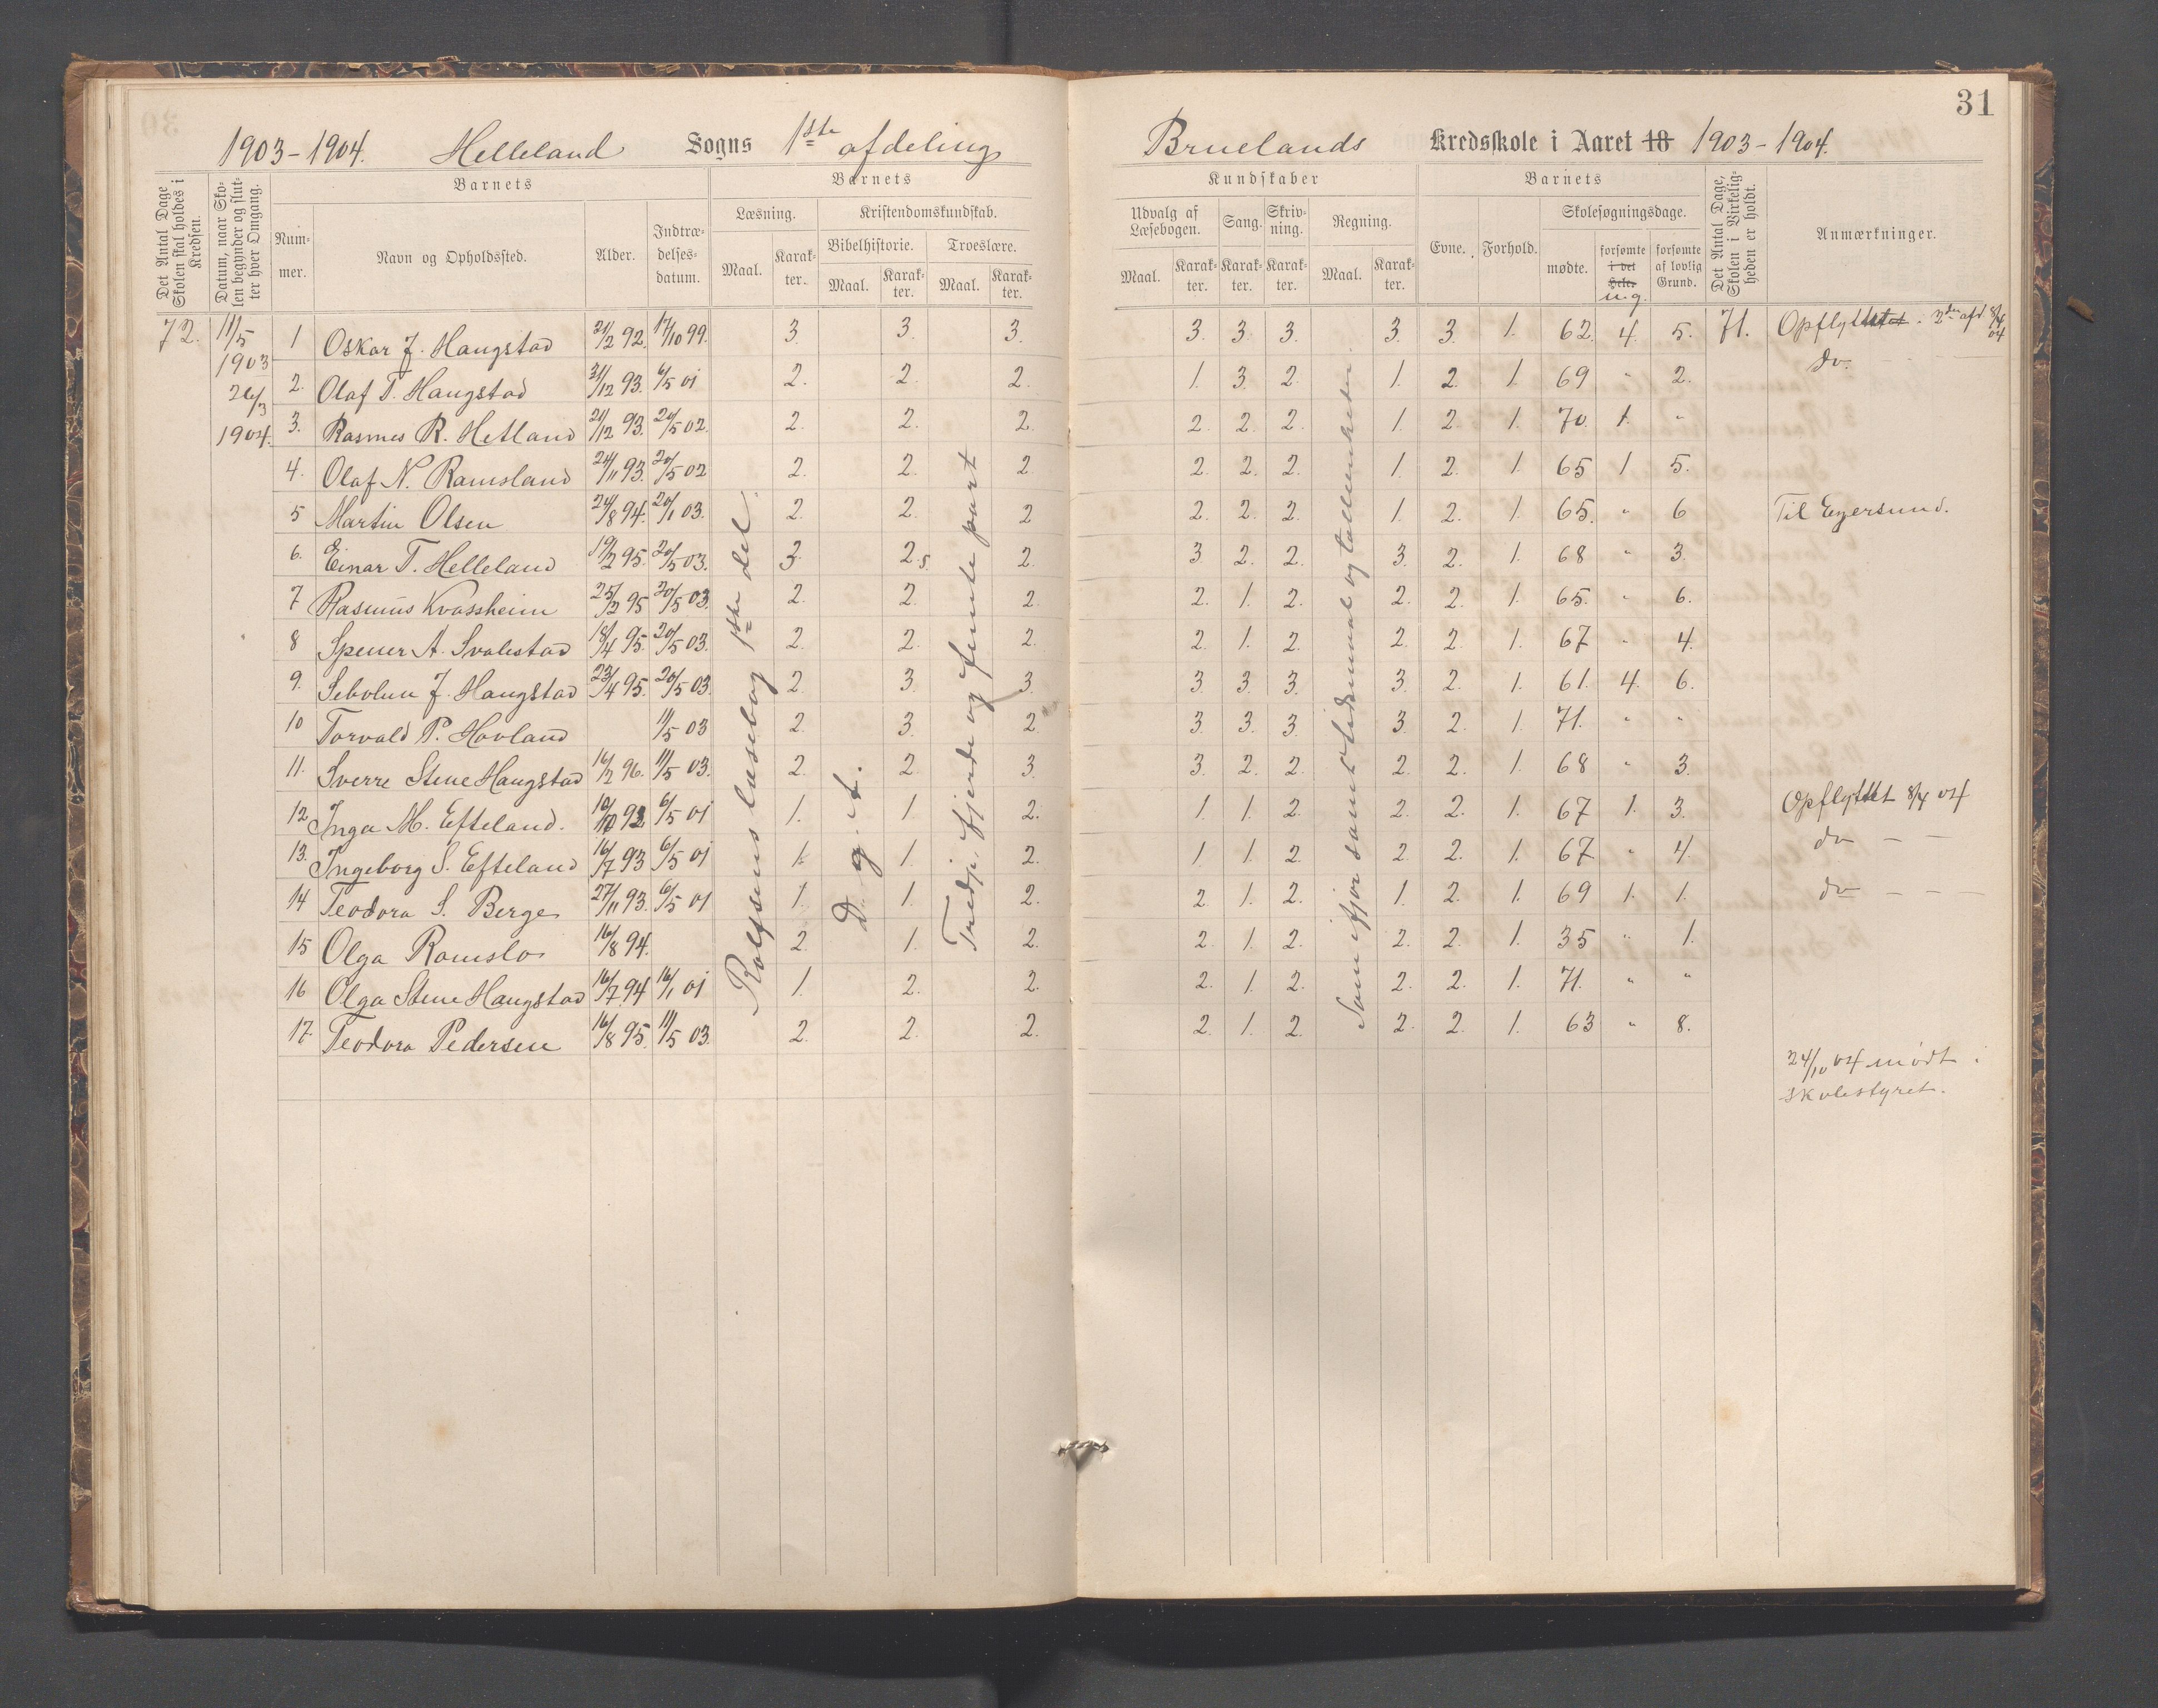 31
1903-1904. Helleland Sogns 1ste afdeling Bruelands Kredsskole i Aaret 18 1903-1904.
Det Antal Dage Skolen skal holdes i Kredsen.
Datum, naar Skolen begynder og slutter hver Omgang.
Barnets
Nummer.
Navn og Opholdssted.
Alder.
Indtrædelsesdatum.
Barnets
Læsning.
Maal. Karakter.
Kristendomskundskab.
Bibelhistorie. Troeslære.
Maal. Karakter. Maal. Karakter.
Kundskaber
Udvalg af Læsebogen. Sang. Skrivning. Regning.
Maal. Karakter. Karakter. Karakter. Maal. Karakter.
Barnets
Evne. Forhold. Skolesøgningsdage.
mødte. forsømte i det hele. u. g. forsømte af lovlig Grund.
Det Antal Dage, Skolen i Virkeligheden er holdt.
Anmærkninger.
72. 11/5 1903 26/3 1904.
1 Oskar J. Haugstad 21/2 92. 17/10 99. 3. 3. 3. 3. 3. 3. 3. 3. 1. 62. 4. 5. 71. Opflyttet. 2den afd. 8/4 04
2. Olaf T. Haugstad 31/12 93. 6/5 01 2. 2. 2. 1. 3. 2. 1. 2. 1. 69 " 2. do.
3. Rasmus R. Hetland 21/12 93. 20/5 02. 2. 2. 2. 2. 2. 2. 1. 2. 1. 70. 1. "
4. Olaf N. Ramsland 24/11 93. 20/5 02 2. 2. 2. 2. 2. 2. 1. 2. 1. 65 1 5.
5 Martin Olsen 24/8 94. 20/1 03. 2. 2. 2 2. 2. 2. 1. 2. 1. 65. " 6 Til Egersund.
6. Einar T. Helleland 19/2 95. 20/5 03. 3. 2.5. 2. 3 2. 2. 3. 2. 1. 68 " 3.
7 Rasmus Kvassheim 25/2 95 20/5 03. 2. 2. 2. 2. 1. 2. 2. 2. 1. 65. " 6.
8 Spener A. Svalestad 18/4 95. 20/5 03. 2. 2. 2. 2. 1. 2. 2. 2. 1. 67 " 4.
9. Sebolun J. Haugstad 23/4 95. 20/5 03. 2. 3. 3. 3. 3. 3. 3. 2. 1. 61. 4. 6.
10 Torvald P. Hovland 11/5 03 2. 3. 2. 3. 3. 3. 3. 2. 1. 71. " "
11. Sverre Stene Haugstad 16/2 96. 11/5 03. 2. 2. 3. 3. 2. 2. 2. 2. 1. 68 " 3.
12. Inga M. Efteland. 10/10 92 6/5 01 1. 1. 2. 1. 1. 2. 2. 2. 1. 67 1. 3. Opflyttet 8/4 04
13. Ingeborg S. Efteland 16/7 93 6/5 01 1. 1. 2. 1. 1. 2. 2. 2. 1. 67 " 4. do
14 Teodora S. Berge 27/11 93. 6/5 01 1. 1. 2. 2. 1. 2. 1. 2. 1. 69 1. 1. do
15 Olga Ramslo 16/8 94. 2. 1. 2. 2. 1. 2. 2. 2. 1. 35 " 1.
16 Olga Stene Haugstad 16/7 94 16/1 01 1. 2. 2. 2. 1. 2. 2. 2. 1. 71. " "
17. Teodora Pedersen 16/8 95. 11/5 03. 2. 2. 2. 2. 1. 2. 2. 2. 1. 63 " 8.
Rolfsens læsebog 1ste del.
D. g. t.
Tredje, fjerde og femte part
Som ifjor samt tidsmaal og tallenheder.
24/10 04 mødt i
skolestyret.